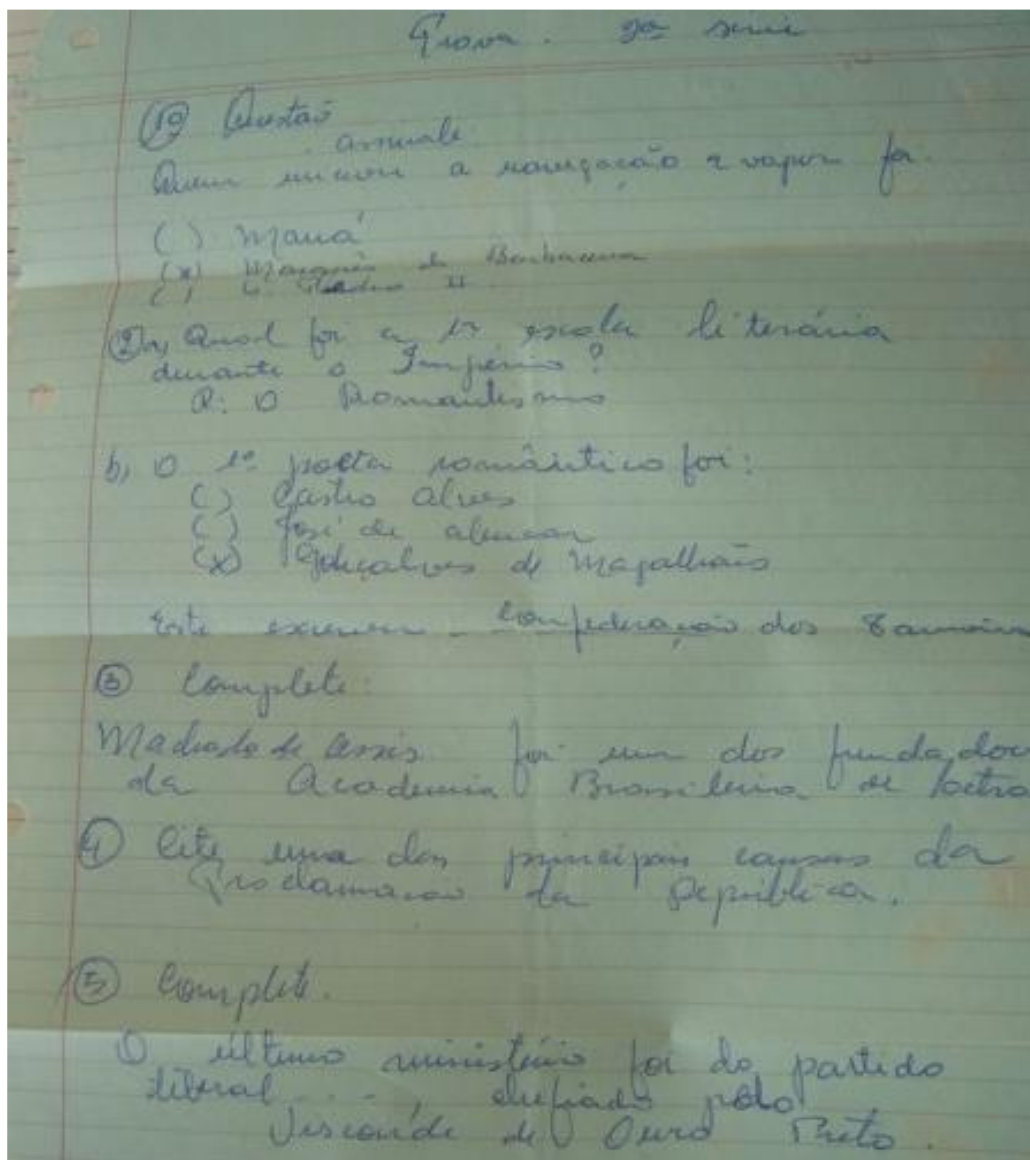 Prova. 3ª série
1ª Questão
assinale
Quem iniciou a navegação a vapor foi.
( ) Mauá
(x) Marquês de Barbacena
( ) D. Pedro II
2) a, Qual foi a 1ª escola literária
durante o Império?
R: O Romantismo
b, O 1º poeta romântico foi:
( ) Castro Alves
( ) José de Alencar
(x) Gonçalves de Magalhães
Este escreveu - Confederação dos Tamoios
3 Complete:
Machado de Assis foi um dos fundadores
da Academia Brasileira de Letras
4 Cite uma das principais causas da
Proclamação da República.
5 Complete.
O último ministério foi do partido
liberal..., chefiado pelo
Visconde de Ouro Preto.